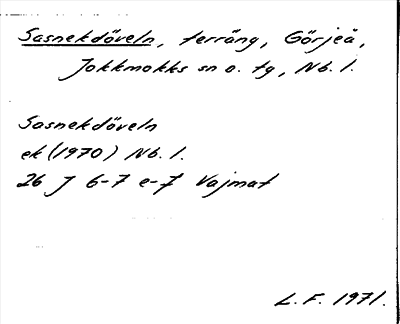 Sasnekdåveln, terräng, Görjeå,
Jokkmokks sn o. tg, Nb. l.
Sasnekdåveln
ek (1970) Nb. l.
26 J 6-7 e-f Vajmat
L. F. 1971.